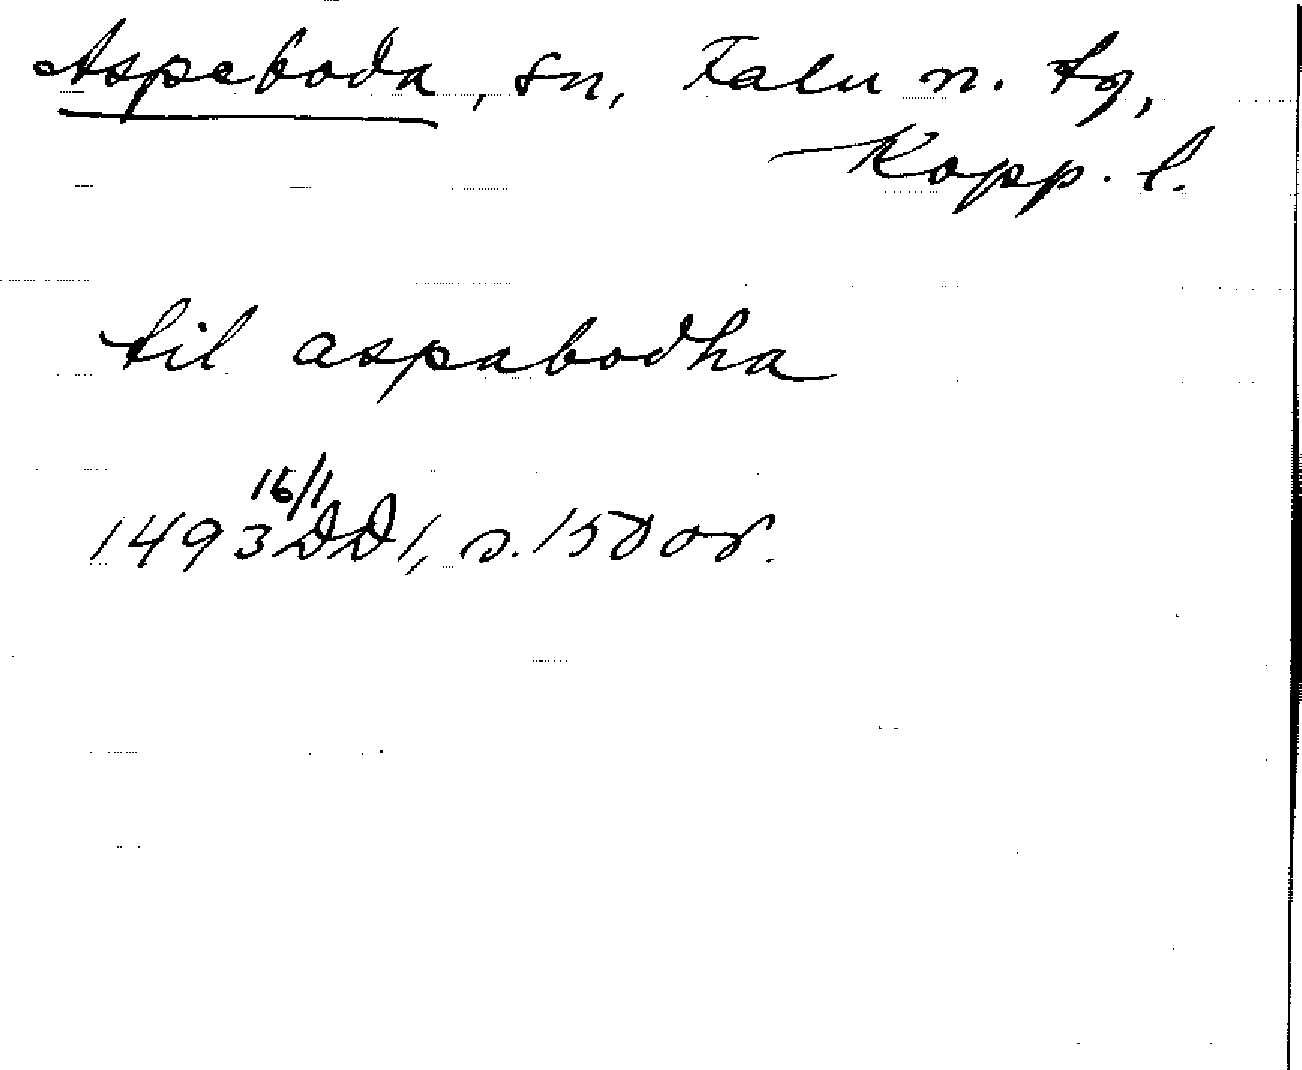 Aspeboda, sn, Falu n. tg,
Kopp. l.
til aspabodha
16/1
1493 DD 1, s. 150 or.